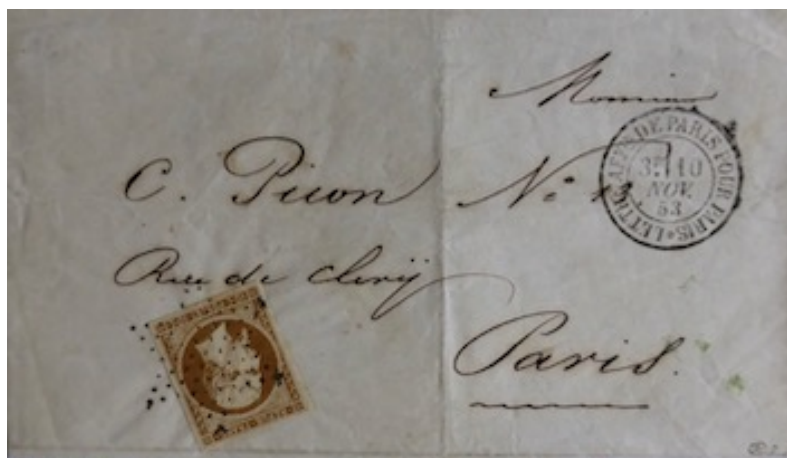 Monsieur
C. Picon N° 13.
Rue de Cleryÿ
Paris.
LETTRE AFF. DE PARIS POUR PARIS
3E 10
NOV.
53